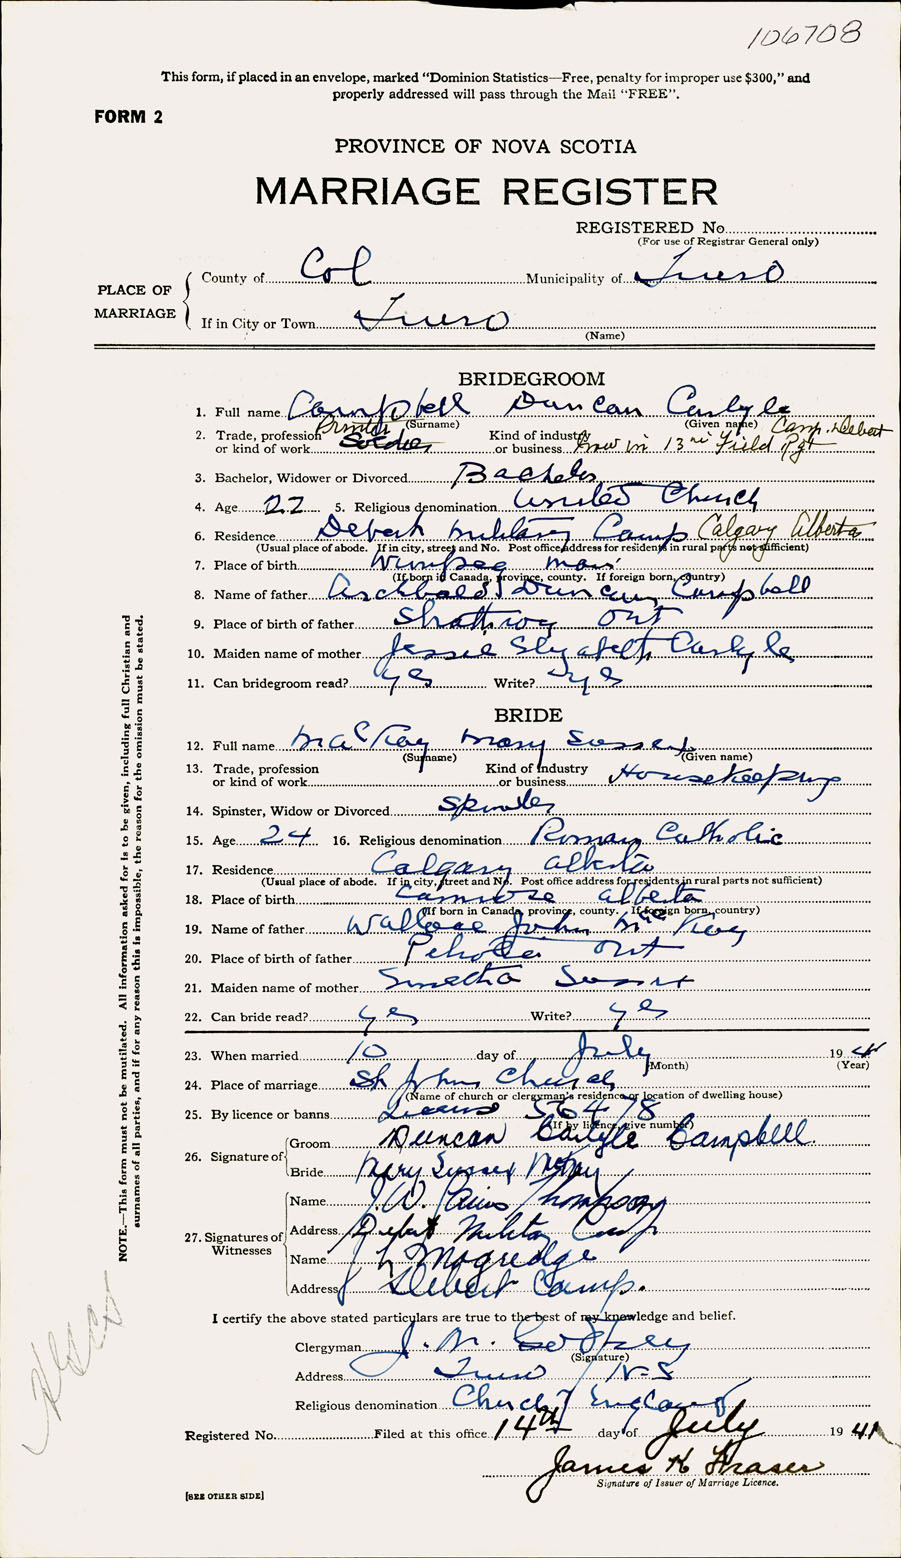 106708
This form, if placed in an envelope, marked "Dominion Statistics—Free, penalty for improper use $300," and
properly addressed will pass through the Mail "FREE".
FORM 2
PROVINCE OF NOVA SCOTIA
MARRIAGE REGISTER
REGISTERED No.
(For use of Registrar General only)
PLACE OF MARRIAGE
County of Col Municipality of Truro
If in City or Town Truro
(Name)
BRIDEGROOM
1. Full name Campbell Duncan Carlyle
(Surname) (Given name)
2. Trade, profession or kind of work Printer Soldier Kind of industry or business Now in 13th Field Rgt Camp Debert
3. Bachelor, Widower or Divorced Bachelor
4. Age 22 5. Religious denomination United Church
6. Residence Debert Military Camp Calgary Alberta
(Usual place of abode. If in city, street and No. Post office address for residents in rural parts not sufficient)
7. Place of birth Winnipeg Man
(If born in Canada, province, county. If foreign born, country)
8. Name of father Archibald Duncan Campbell
9. Place of birth of father Strathroy Ont
10. Maiden name of mother Jessie Elizabeth Carlyle
11. Can bridegroom read? yes Write? yes
BRIDE
12. Full name MacKay Mary Sussex
(Surname) (Given name)
13. Trade, profession or kind of work Kind of industry or business Housekeeping
14. Spinster, Widow or Divorced Spinster
15. Age 24 16. Religious denomination Roman Catholic
17. Residence Calgary Alberta
(Usual place of abode. If in city, street and No. Post office address for residents in rural parts not sufficient)
18. Place of birth Camrose Alberta
(If born in Canada, province, county. If foreign born, country)
19. Name of father Wallace John McKay
20. Place of birth of father Ont
21. Maiden name of mother Sussex
22. Can bride read? yes Write? yes
23. When married 10 day of July 194
(Month) (Year)
24. Place of marriage St Johns Church
(Name of church or clergyman's residence or location of dwelling house)
25. By licence or banns License 56478
(If by licence, give number)
26. Signature of
Groom Duncan Carlyle Campbell.
Bride Mary Sussex McKay
27. Signatures of Witnesses
Name J. W. Thompson
Address Debert Military Camp
Name Mogridge
Address Debert Camp.
I certify the above stated particulars are true to the best of my knowledge and belief.
Clergyman J. M.
(Signature)
Address Truro N-S
Religious denomination Church of England
Registered No. Filed at this office 14th day of July 1941
James K Fraser
Signature of Issuer of Marriage Licence.
[SEE OTHER SIDE]
NOTE.—This form must not be mutilated. All information asked for is to be given, including full Christian and
surnames of all parties, and if for any reason this is impossible, the reason for the omission must be stated.